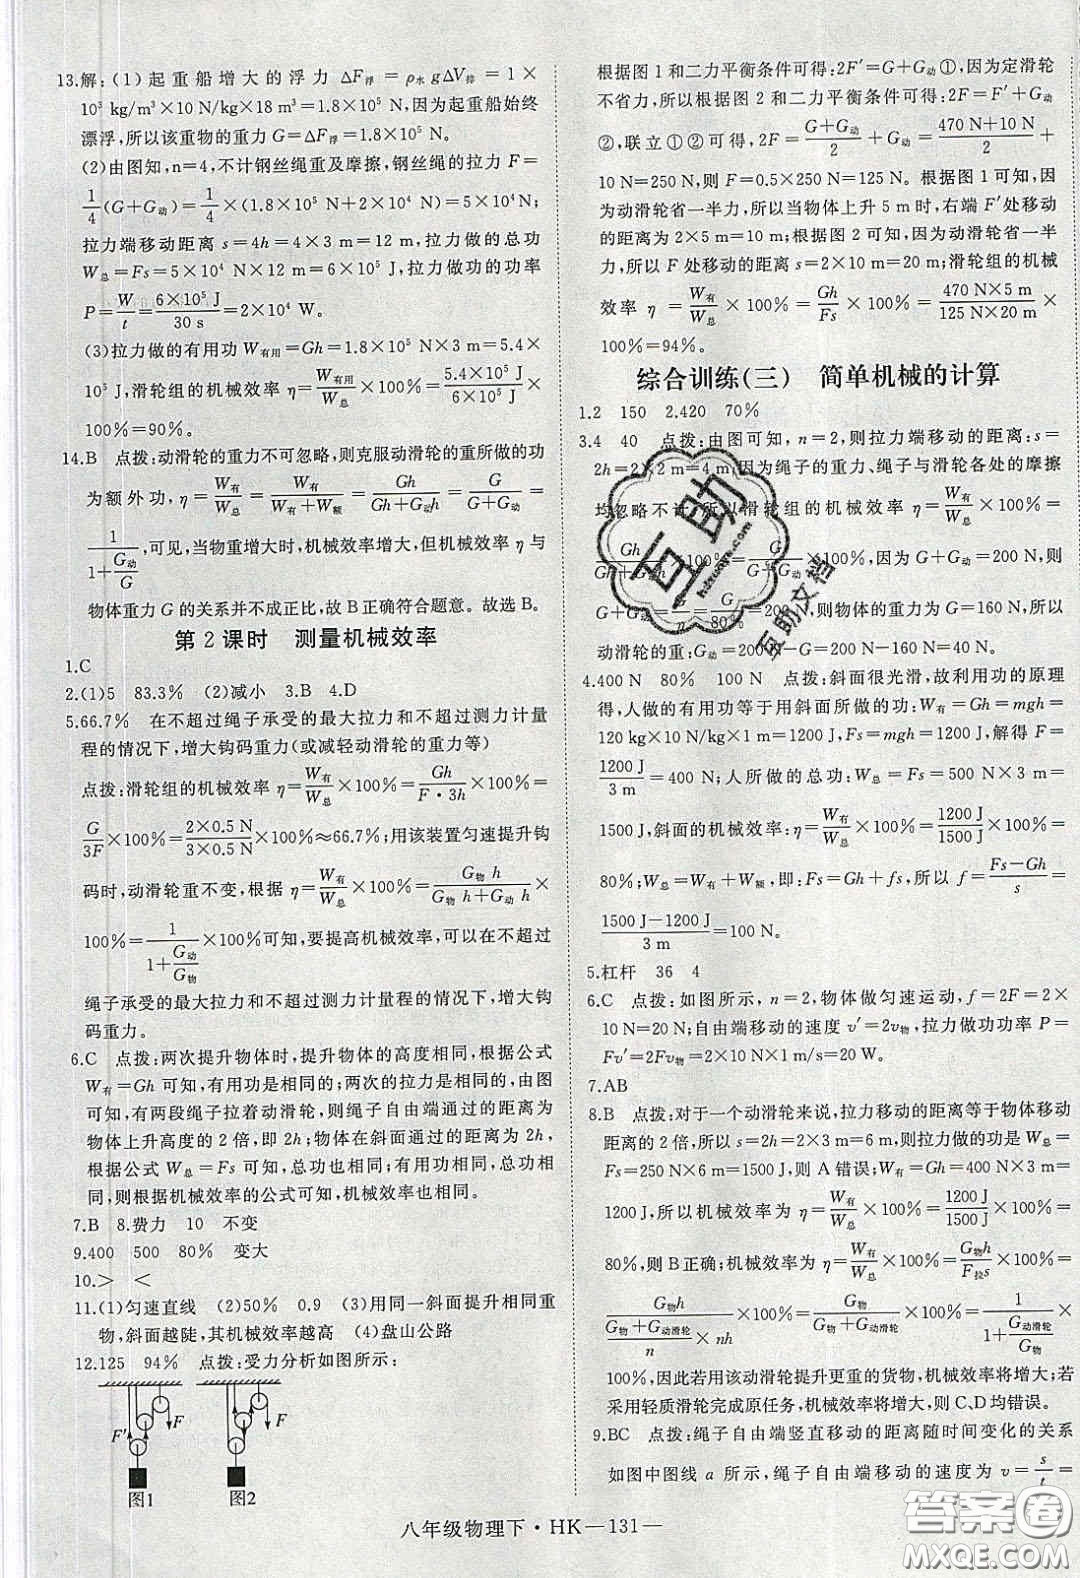 13.解：(1)起重船增大的浮力 ΔF浮＝ρ水gΔV排＝1×
10³ kg/m³×10 N/kg×18 m³＝1.8×10⁵ N，因为起重船始终
漂浮，所以该重物的重力 G＝ΔF浮＝1.8×10⁵ N。
(2)由图知，n＝4，不计钢丝绳重及摩擦，钢丝绳的拉力 F＝
1/4(G＋G动)＝1/4×(1.8×10⁵ N＋2×10⁴ N)＝5×10⁴ N；
拉力端移动距离 s＝4h＝4×3 m＝12 m，拉力做的总功
W总＝Fs＝5×10⁴ N×12 m＝6×10⁵ J，拉力做功的功率
P＝W/t＝6×10⁵ J/30 s＝2×10⁴ W。
(3)拉力做的有用功 W有用＝Gh＝1.8×10⁵ N×3 m＝5.4×
10⁵ J，滑轮组的机械效率 η＝W有用/W总×100%＝5.4×10⁵ J/6×10⁵ J×
100%＝90%。
14.B 点拨：动滑轮的重力不可忽略，则克服动滑轮的重所做的功
为额外功，η＝W有/W总＝W有/(W有＋W额)＝Gh/(Gh＋G动h)＝G/(G＋G动)＝
1/(1＋G动/G)，可见，当物重增大时，机械效率增大，但机械效率 η 与
物体重力 G 的关系并不成正比，故 B 正确符合题意。故选 B。
第 2 课时 测量机械效率
1.C
2.(1)5 83.3% (2)减小 3.B 4.D
5.66.7% 在不超过绳子承受的最大拉力和不超过测力计量
程的情况下，增大钩码重力(或减轻动滑轮的重力等)
点拨：滑轮组的机械效率 η＝W有/W总×100%＝Gh/(F·3h)×100%＝
G/3F×100%＝(2×0.5 N)/(3×0.5 N)×100%≈66.7%；用该装置匀速提升钩
码时，动滑轮重不变，根据 η＝W有/W总＝G物h/(G物h＋G动h)×
100%＝1/(1＋G动/G物)×100%可知，要提高机械效率，可以在不超过
绳子承受的最大拉力和不超过测力计量程的情况下，增大钩
码重力。
6.C 点拨：两次提升物体时，提升物体的高度相同，根据公式
W有＝Gh 可知，有用功是相同的；两次的拉力相同，由图
可知，有两段绳子拉着动滑轮，绳子自由端通过的距离为
物体上升高度的 2 倍，即 2h；物体在斜面通过的距离为 2h，
根据公式 W总＝Fs 可知，总功也相同；有用功相同，总功相
同，则根据机械效率的公式可知，机械效率也相同。
7.B 8.费力 10 不变
9.400 500 80% 变大
10.＞ ＜
11.(1)匀速直线 (2)50% 0.9 (3)用同一斜面提升相同重
物，斜面越陡，其机械效率越高 (4)盘山公路
12.125 94% 点拨：受力分析如图所示：
F′ F F
图1 图2
根据图 1 和二力平衡条件可得：2F′＝G＋G动①，因为定滑轮
不省力，所以根据图 2 和二力平衡条件可得：2F＝F′＋G动
②，联立①②可得，2F＝(G＋G动)/2＋G动＝(470 N＋10 N)/2＋
10 N＝250 N，则 F＝0.5×250 N＝125 N。根据图 1 可知，
因为动滑轮省一半力，所以当物体上升 5 m 时，右端 F′处移动
的距离为 2×5 m＝10 m；根据图 2 可知，因为动滑轮省一半
力，所以 F 处移动的距离 s＝2×10 m＝20 m；滑轮组的机械
效率 η＝W有/W总×100%＝Gh/Fs×100%＝(470 N×5 m)/(125 N×20 m)×
100%＝94%。
综合训练(三) 简单机械的计算
1.2 150 2.420 70%
3.4 40 点拨：由图可知，n＝2，则拉力端移动的距离：s＝
2h＝2×2 m＝4 m，因为绳子的重力、绳子与滑轮各处的摩擦
均忽略不计，所以滑轮组的机械效率：η＝W有/W总＝
Gh/(Gh＋G动h)×100%＝G/(G＋G动)×100%，因为 G＋G动＝200 N，则
G＋G动＝G/η＝G/80%＝200 N，则物体的重力为 G＝160 N，所以
动滑轮的重：G动＝200 N－160 N＝40 N。
4.400 N 80% 100 N 点拨：斜面很光滑，故利用功的原理
得，人做的有用功等于用斜面所做的功：W有＝Gh＝mgh＝
120 kg×10 N/kg×1 m＝1200 J，Fs＝mgh＝1200 J，解得 F＝
1200 J/3 m＝400 N；人所做的总功：W总＝Fs＝500 N×3 m＝
1500 J，斜面的机械效率：η＝W有/W总×100%＝1200 J/1500 J×100%＝
80%；W总＝W有＋W额，即：Fs＝Gh＋fs，所以 f＝(Fs－Gh)/s＝
(1500 J－1200 J)/3 m＝100 N。
5.杠杆 36 4
6.C 点拨：如图所示，n＝2，物体做匀速运动，f＝2F＝2×
10 N＝20 N；自由端移动的速度 v′＝2v物，拉力做功功率 P＝
Fv′＝2Fv物＝2×10 N×1 m/s＝20 W。
7.AB
8.B 点拨：对于一个动滑轮来说，拉力移动的距离等于物体移动
距离的 2 倍，所以 s＝2h＝2×3 m＝6 m，则拉力做的功是 W总＝
Fs＝250 N×6 m＝1500 J，则 A 错误；W有＝Gh＝400 N×3 m＝
1200 J，所以机械效率为 η＝W有/W总×100%＝1200 J/1500 J×100%＝
80%，则 B 正确；机械效率为 η＝W有/W总＝G物h/F拉s×100%＝
G物h/((G物＋G动滑轮)/n×nh)×100%＝G物/(G物＋G动滑轮)×100%＝1/(1＋G动滑轮/G物)×
100%，因此若用该动滑轮提升更重的货物，机械效率将增大；若
采用轻质滑轮完成原任务，机械效率将增大，则 C、D 均错误。
9.BC 点拨：绳子自由端竖直移动的距离随时间变化的关系
如图中图线 a 所示，绳子自由端移动的速度为 v＝s/t＝
八年级物理下·HK—131—
互助
hzhuowx.com
互助文档
答案圈
MXQE.COM